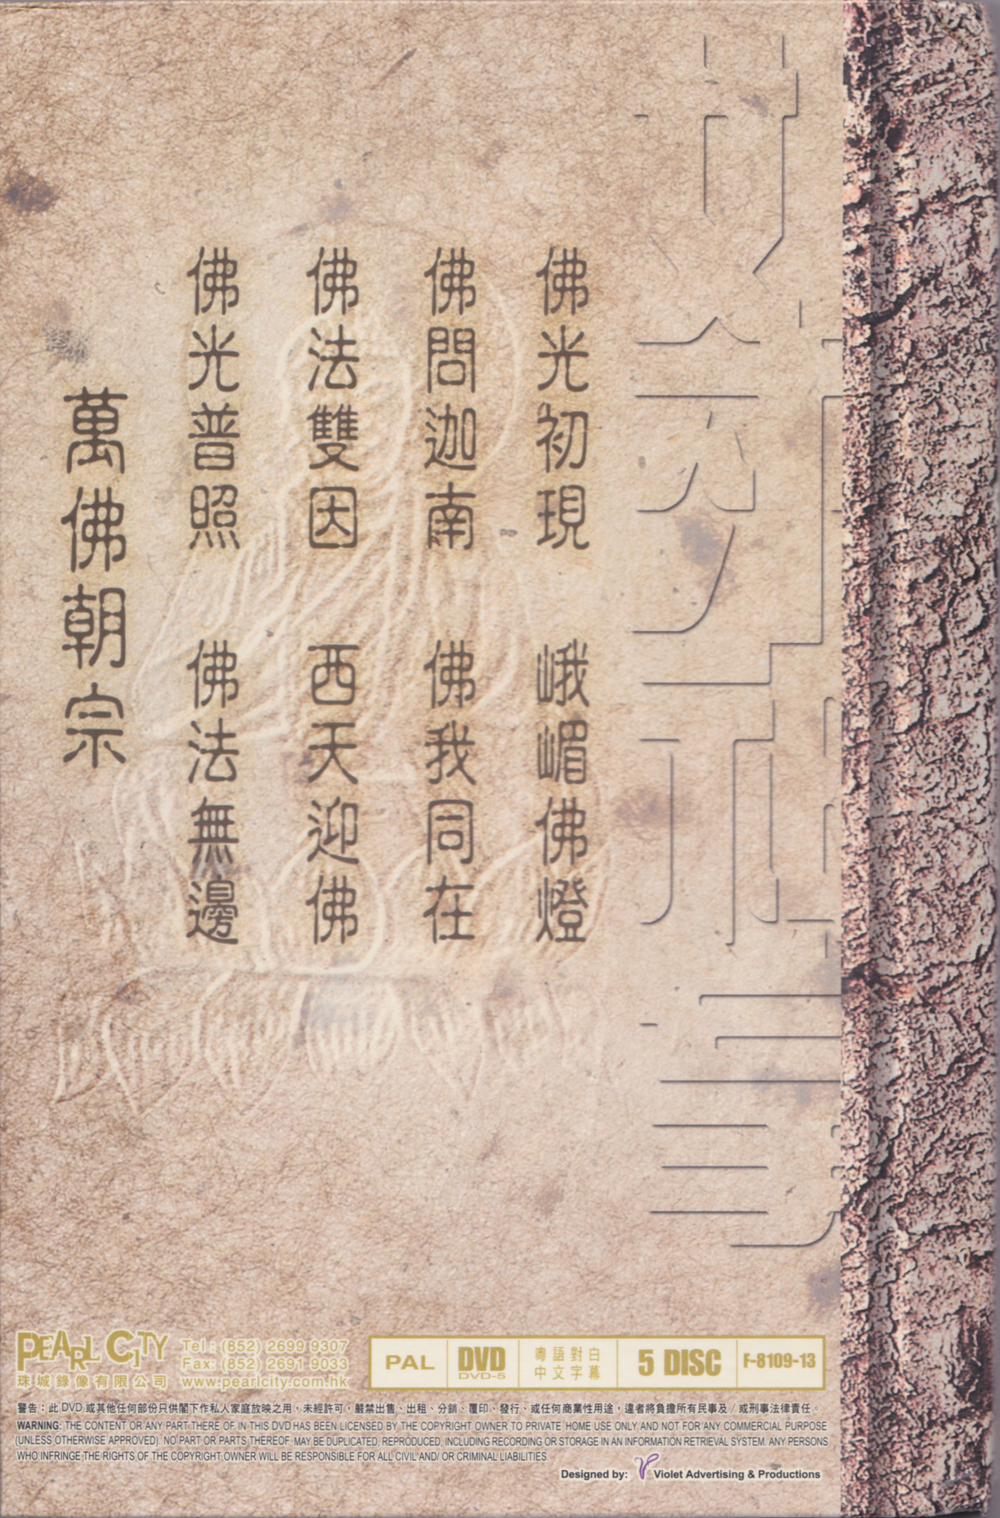 佛光初現 峨嵋佛燈
佛問迦南 佛我同在
佛法雙因 西天迎佛
佛光普照 佛法無邊
萬佛朝宗
PEARL CITY
珠城錄像有限公司
Tel : (852) 2699 9307
Fax: (852) 2691 9033
www.pearlcity.com.hk
PAL
DVD
DVD-5
粵語對白
中文字幕
5 DISC
F-8109-13
警告：此 DVD 或其他任何部份只供閣下作私人家庭放映之用，未經許可，嚴禁出售、出租、分銷、覆印、發行、或任何商業性用途，違者將負擔所有民事及 / 或刑事法律責任。
WARNING: THE CONTENT OR ANY PART THERE OF IN THIS DVD HAS BEEN LICENSED BY THE COPYRIGHT OWNER TO PRIVATE HOME USE ONLY AND NOT FOR ANY COMMERCIAL PURPOSE
(UNLESS OTHERWISE APPROVED). NO PART OR PARTS THEREOF MAY BE DUPLICATED, REPRODUCED, INCLUDING RECORDING OR STORAGE IN AN INFORMATION RETRIEVAL SYSTEM. ANY PERSONS
WHO INFRINGE THE RIGHTS OF THE COPYRIGHT OWNER WILL BE RESPONSIBLE FOR ALL CIVIL AND/ OR CRIMINAL LIABILITIES.
Designed by: Violet Advertising & Productions